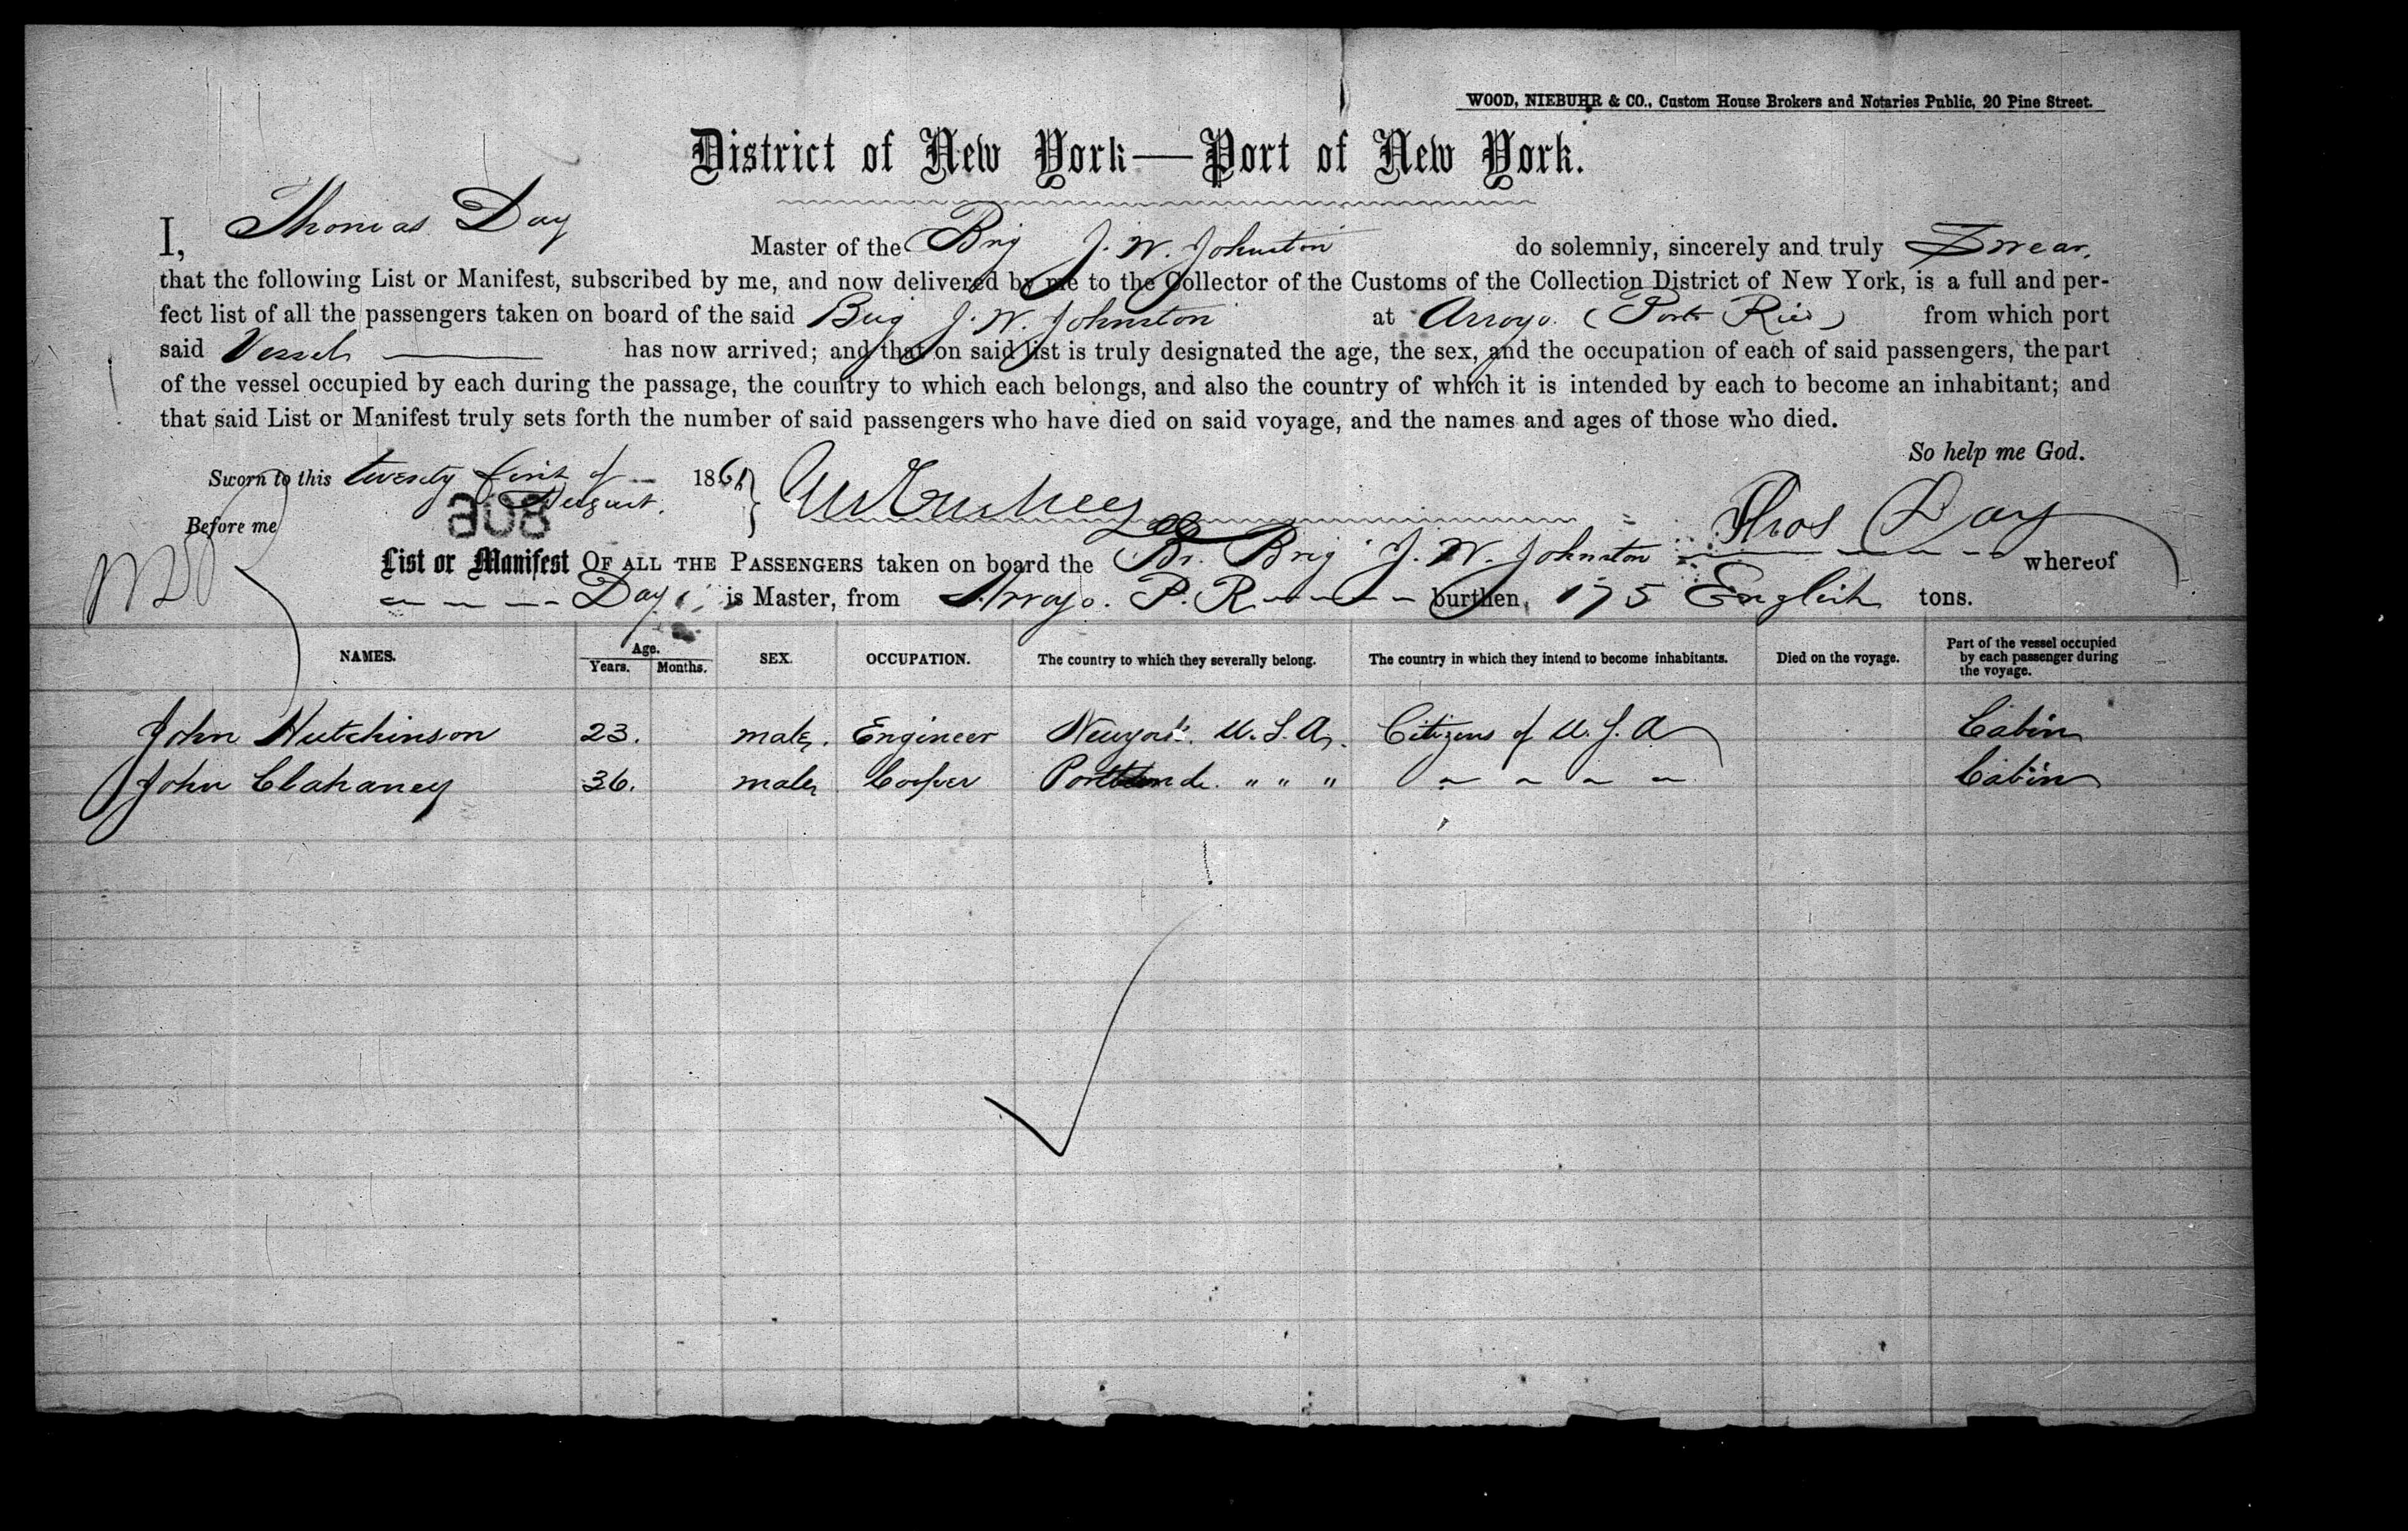 WOOD, NIEBUHR & CO., Custom House Brokers and Notaries Public, 20 Pine Street.
District of New York—Port of New York.
I, Thomas Day Master of the Brig J. W. Johnston do solemnly, sincerely and truly Swear,
that the following List or Manifest, subscribed by me, and now delivered by me to the Collector of the Customs of the Collection District of New York, is a full and per-
fect list of all the passengers taken on board of the said Brig J. W. Johnston at Arroyo. (Porto Rico) from which port
said Vessel has now arrived; and that on said list is truly designated the age, the sex, and the occupation of each of said passengers, the part
of the vessel occupied by each during the passage, the country to which each belongs, and also the country of which it is intended by each to become an inhabitant; and
that said List or Manifest truly sets forth the number of said passengers who have died on said voyage, and the names and ages of those who died.
So help me God.
Sworn to this twenty first of August. 186
Before me
808
Thos Day
List or Manifest OF ALL THE PASSENGERS taken on board the Br. Brig J. W. Johnston whereof
Day is Master, from Arroyo. P. R. burthen, 175 English tons.
NAMES. Age. Years. Months. SEX. OCCUPATION. The country to which they severally belong. The country in which they intend to become inhabitants. Died on the voyage. Part of the vessel occupied by each passenger during the voyage.
John Hutchinson 23. male. Engineer Newyork. U.S.A. Citizens of U.S.A Cabin
John Clahaney 36. male Cooper Portland. " " " Cabin